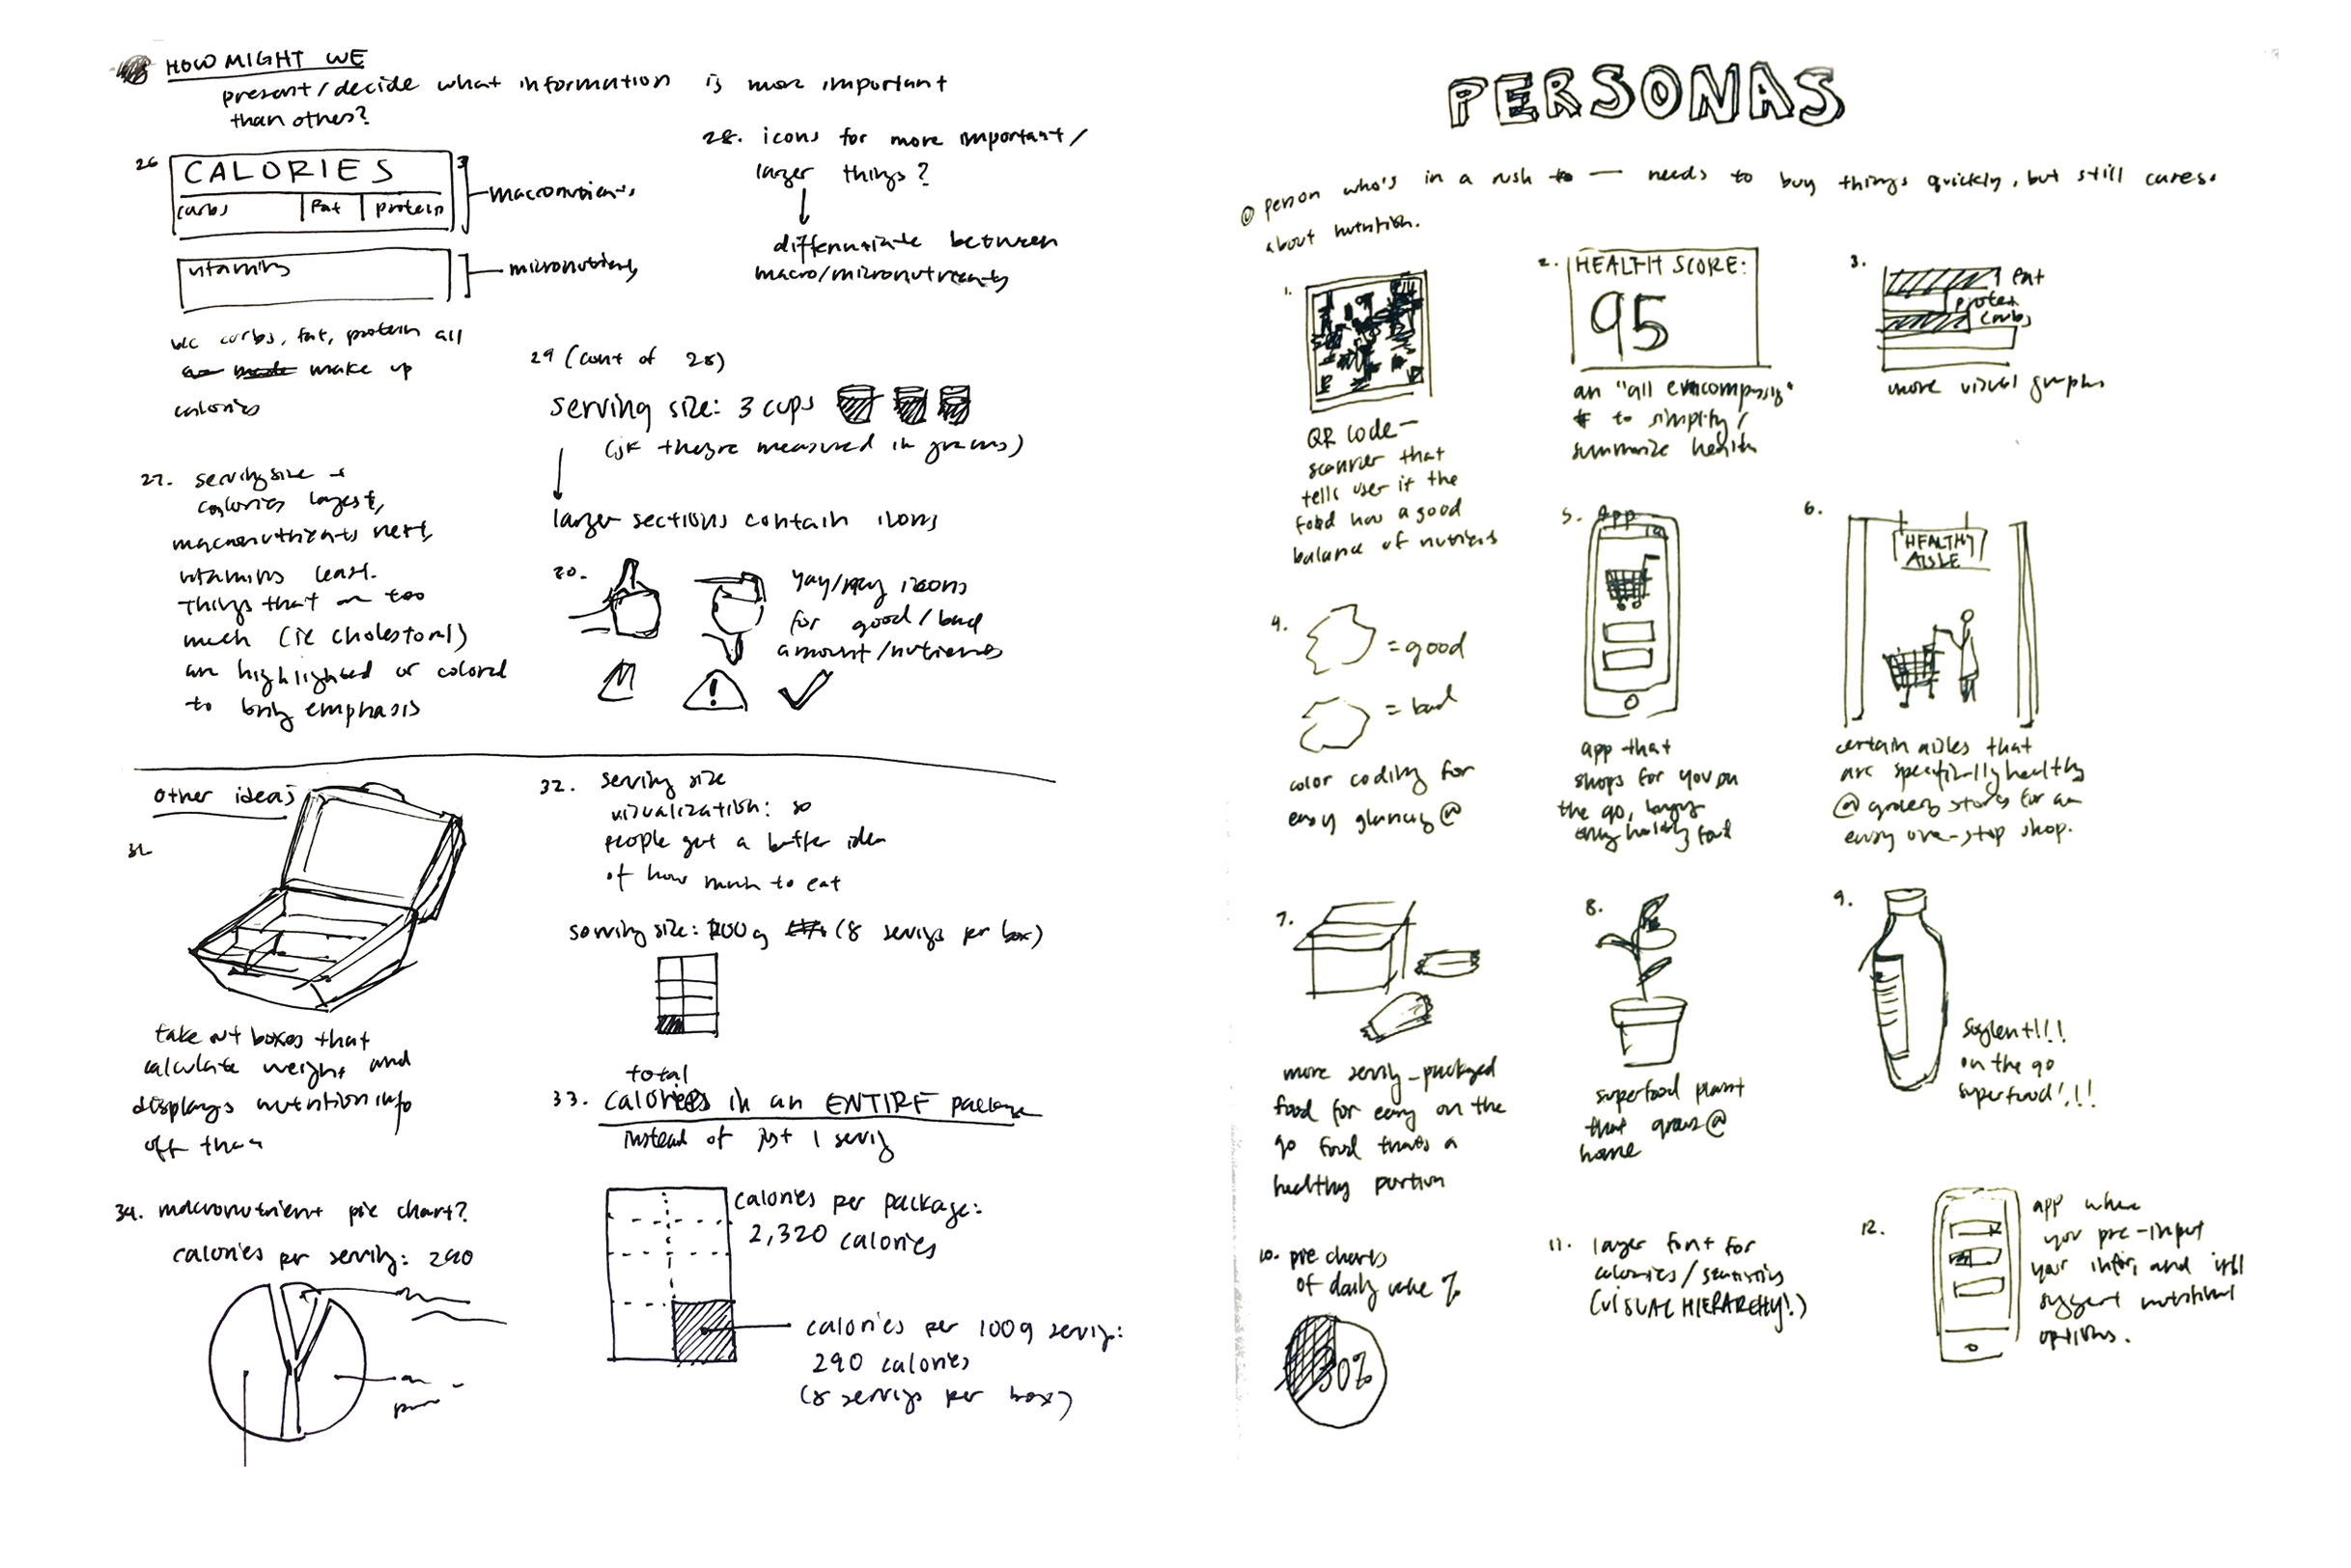 HOW MIGHT WE
present/decide what information is more important
than others?
26
CALORIES
carbs fat protein
macronutrients
vitamins
micronutrients
bc carbs, fat, protein all
make up
calories
27. serving size +
calories largest,
macronutrients next,
vitamins least.
Things that are too
much (ie cholesterol)
are highlighted or colored
to bring emphasis
28. icons for more important/
larger things?
differentiate between
macro/micronutrients
29 (cont of 28)
serving size: 3 cups
(jk they're measured in grams)
larger sections contain icons
30.
yay/nay icons
for good/bad
amount/nutrients
!
other ideas
31.
take out boxes that
calculate weight and
displays nutrition info
off that
32. serving size
visualization: so
people get a better idea
of how much to eat
serving size: 100g (8 servings per box)
total
33. calories in an ENTIRE package
instead of just 1 serving
calories per package:
2,320 calories
calories per 100g serving:
290 calories
(8 servings per box)
34. macronutrient pie chart?
calories per serving: 290
PERSONAS
person who's in a rush — needs to buy things quickly, but still cares
about nutrition.
1.
QR code—
scanner that
tells user if the
food has a good
balance of nutrients
2.
HEALTH SCORE:
95
an "all encompassing"
# to simplify/
summarize health
3.
fat
protein
carbs
more visual graphs
4.
= good
= bad
color coding for
easy glancing@
5. App
app that
shops for you on
the go, buying
only healthy food
6.
HEALTHY
AISLE
certain aisles that
are specifically healthy
@grocery stores for an
easy one-stop shop.
7.
more serving-packaged
food for easy on the
go food thats a
healthy portion
8.
superfood plant
that grows@
home
9.
soylent!!!
on the go
superfood!!!
10. pie charts
of daily value %
30%
11. larger font for
calories/statistics
(VISUAL HIERARCHY!)
12.
app where
you pre-input
your info, and it'll
suggest nutritional
options.